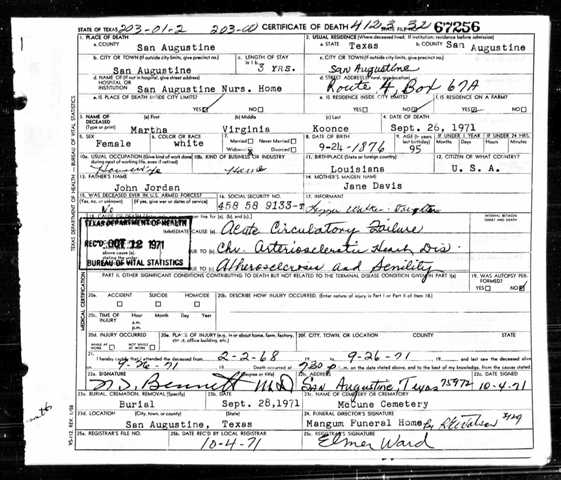 STATE OF TEXAS 203-01-2 203-00 CERTIFICATE OF DEATH 412.3 32 STATE FILE NO. 67256
1. PLACE OF DEATH
a. COUNTY San Augustine
2. USUAL RESIDENCE (Where deceased lived. If institution: residence before admission)
a. STATE Texas b. COUNTY San Augustine
b. CITY OR TOWN (If outside city limits, give precinct no.) San Augustine
c. LENGTH OF STAY in 1b. 3 YRS.
c. CITY OR TOWN (If outside city limits, give precinct no.) San Augustine
d. NAME OF (If not in hospital, give street address) HOSPITAL OR INSTITUTION San Augustine Nurs. Home
d. STREET ADDRESS (If rural, give location) Route 4, Box 67A
e. IS PLACE OF DEATH INSIDE CITY LIMITS? YES NO
e. IS RESIDENCE INSIDE CITY LIMITS? YES NO
f. IS RESIDENCE ON A FARM? YES NO
3. NAME OF DECEASED (Type or print)
(a) First Martha (b) Middle Virginia (c) Last Koonce
4. DATE OF DEATH Sept. 26, 1971
5. SEX Female
6. COLOR OR RACE white
7. Married Never Married Widowed Divorced
8. DATE OF BIRTH 9-24-1876
9. AGE (In years last birthday) 95
IF UNDER 1 YEAR Months Days
IF UNDER 24 HRS. Hours Minutes
10a. USUAL OCCUPATION (Give kind of work done
10b. KIND OF BUSINESS OR INDUSTRY
11. BIRTHPLACE (State or foreign country) Louisiana
12. CITIZEN OF WHAT COUNTRY? U. S. A.
13. FATHER'S NAME John Jordan
14. MOTHER'S MAIDEN NAME Jane Davis
15. WAS DECEASED EVER IN U.S. ARMED FORCES? (Yes, no, or unknown) (If yes, give war or dates of service) No
16. SOCIAL SECURITY NO. 458 58 9133-T
17. INFORMANT
18. CAUSE OF DEATH
INTERVAL BETWEEN ONSET AND DEATH
TEXAS DEPARTMENT OF HEALTH
REC'D OCT 12 1971
BUREAU OF VITAL STATISTICS
IMMEDIATE CAUSE (a) Acute Circulatory Failure
DUE TO (b) Chr. Arteriosclerotic Heart Dis.
DUE TO (c) Atherosclerosis and Senility
PART II. OTHER SIGNIFICANT CONDITIONS CONTRIBUTING TO DEATH BUT NOT RELATED TO THE TERMINAL DISEASE CONDITION GIVEN IN PART I(a)
19. WAS AUTOPSY PERFORMED? YES NO
20a. ACCIDENT SUICIDE HOMICIDE
20b. DESCRIBE HOW INJURY OCCURRED. (Enter nature of injury in Part I or Part II of item 18.)
20c. TIME OF INJURY Hour a.m. p.m. Month Day Year
20d. INJURY OCCURRED WHILE AT WORK NOT WHILE AT WORK
20e. PLACE OF INJURY (e.g. in or about home, farm, factory, street, office building, etc.)
20f. CITY, TOWN, OR LOCATION COUNTY STATE
21. I hereby certify that I attended the deceased from 2-2-68 to 9-26-71 and last saw the deceased alive
9-26-71 Death occurred at 730 p m. on the date stated above, and to the best of my knowledge, from the causes stated.
22a. SIGNATURE (Degree or title) Bennett MD
22b. ADDRESS San Augustine, Texas 75972
22c. DATE SIGNED 10-4-71
23a. BURIAL, CREMATION, REMOVAL (Specify) Burial
23b. DATE Sept. 28,1971
23c. NAME OF CEMETERY OR CREMATORY McCune Cemetery
23d. LOCATION (City, town, or county) (State) San Augustine, Texas
24. FUNERAL DIRECTOR'S SIGNATURE Mangum Funeral Home
25a. REGISTRAR'S FILE NO.
25b. DATE REC'D BY LOCAL REGISTRAR 10-4-71
25c. REGISTRAR'S SIGNATURE Elmer Ward
TEXAS DEPARTMENT OF HEALTH — BUREAU OF VITAL STATISTICS
MEDICAL CERTIFICATION